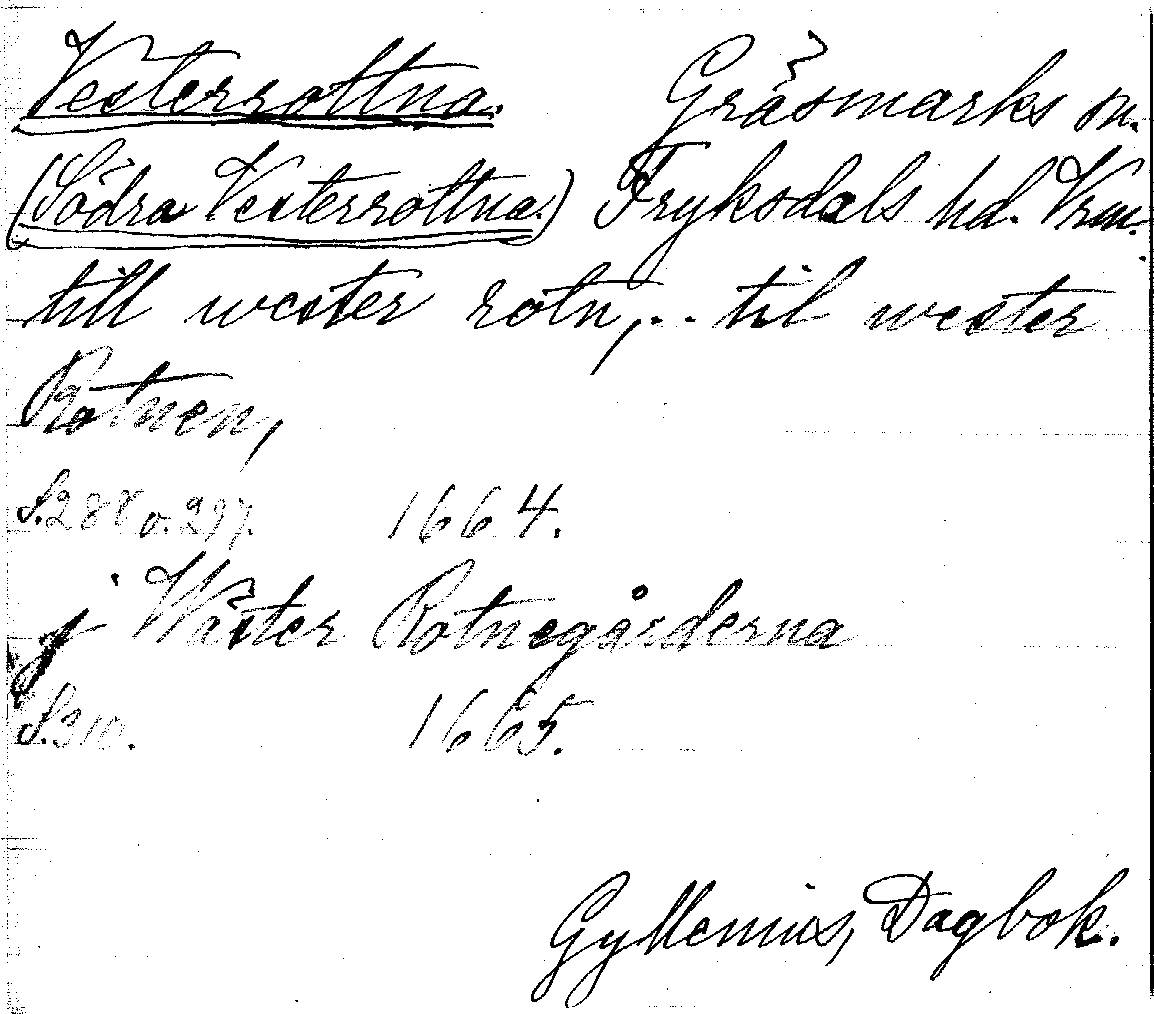 Vesterrottna. Gräsmarks sn.
(Södra Vesterrottna.) Fryksdals hd. Vrm.
till wester rotn,.. til wester
Rotnen,
S.288 o. 297. 1664.
j Wäster Rotnegårderna
S.310. 1665.
Gyllenius, Dagbok.